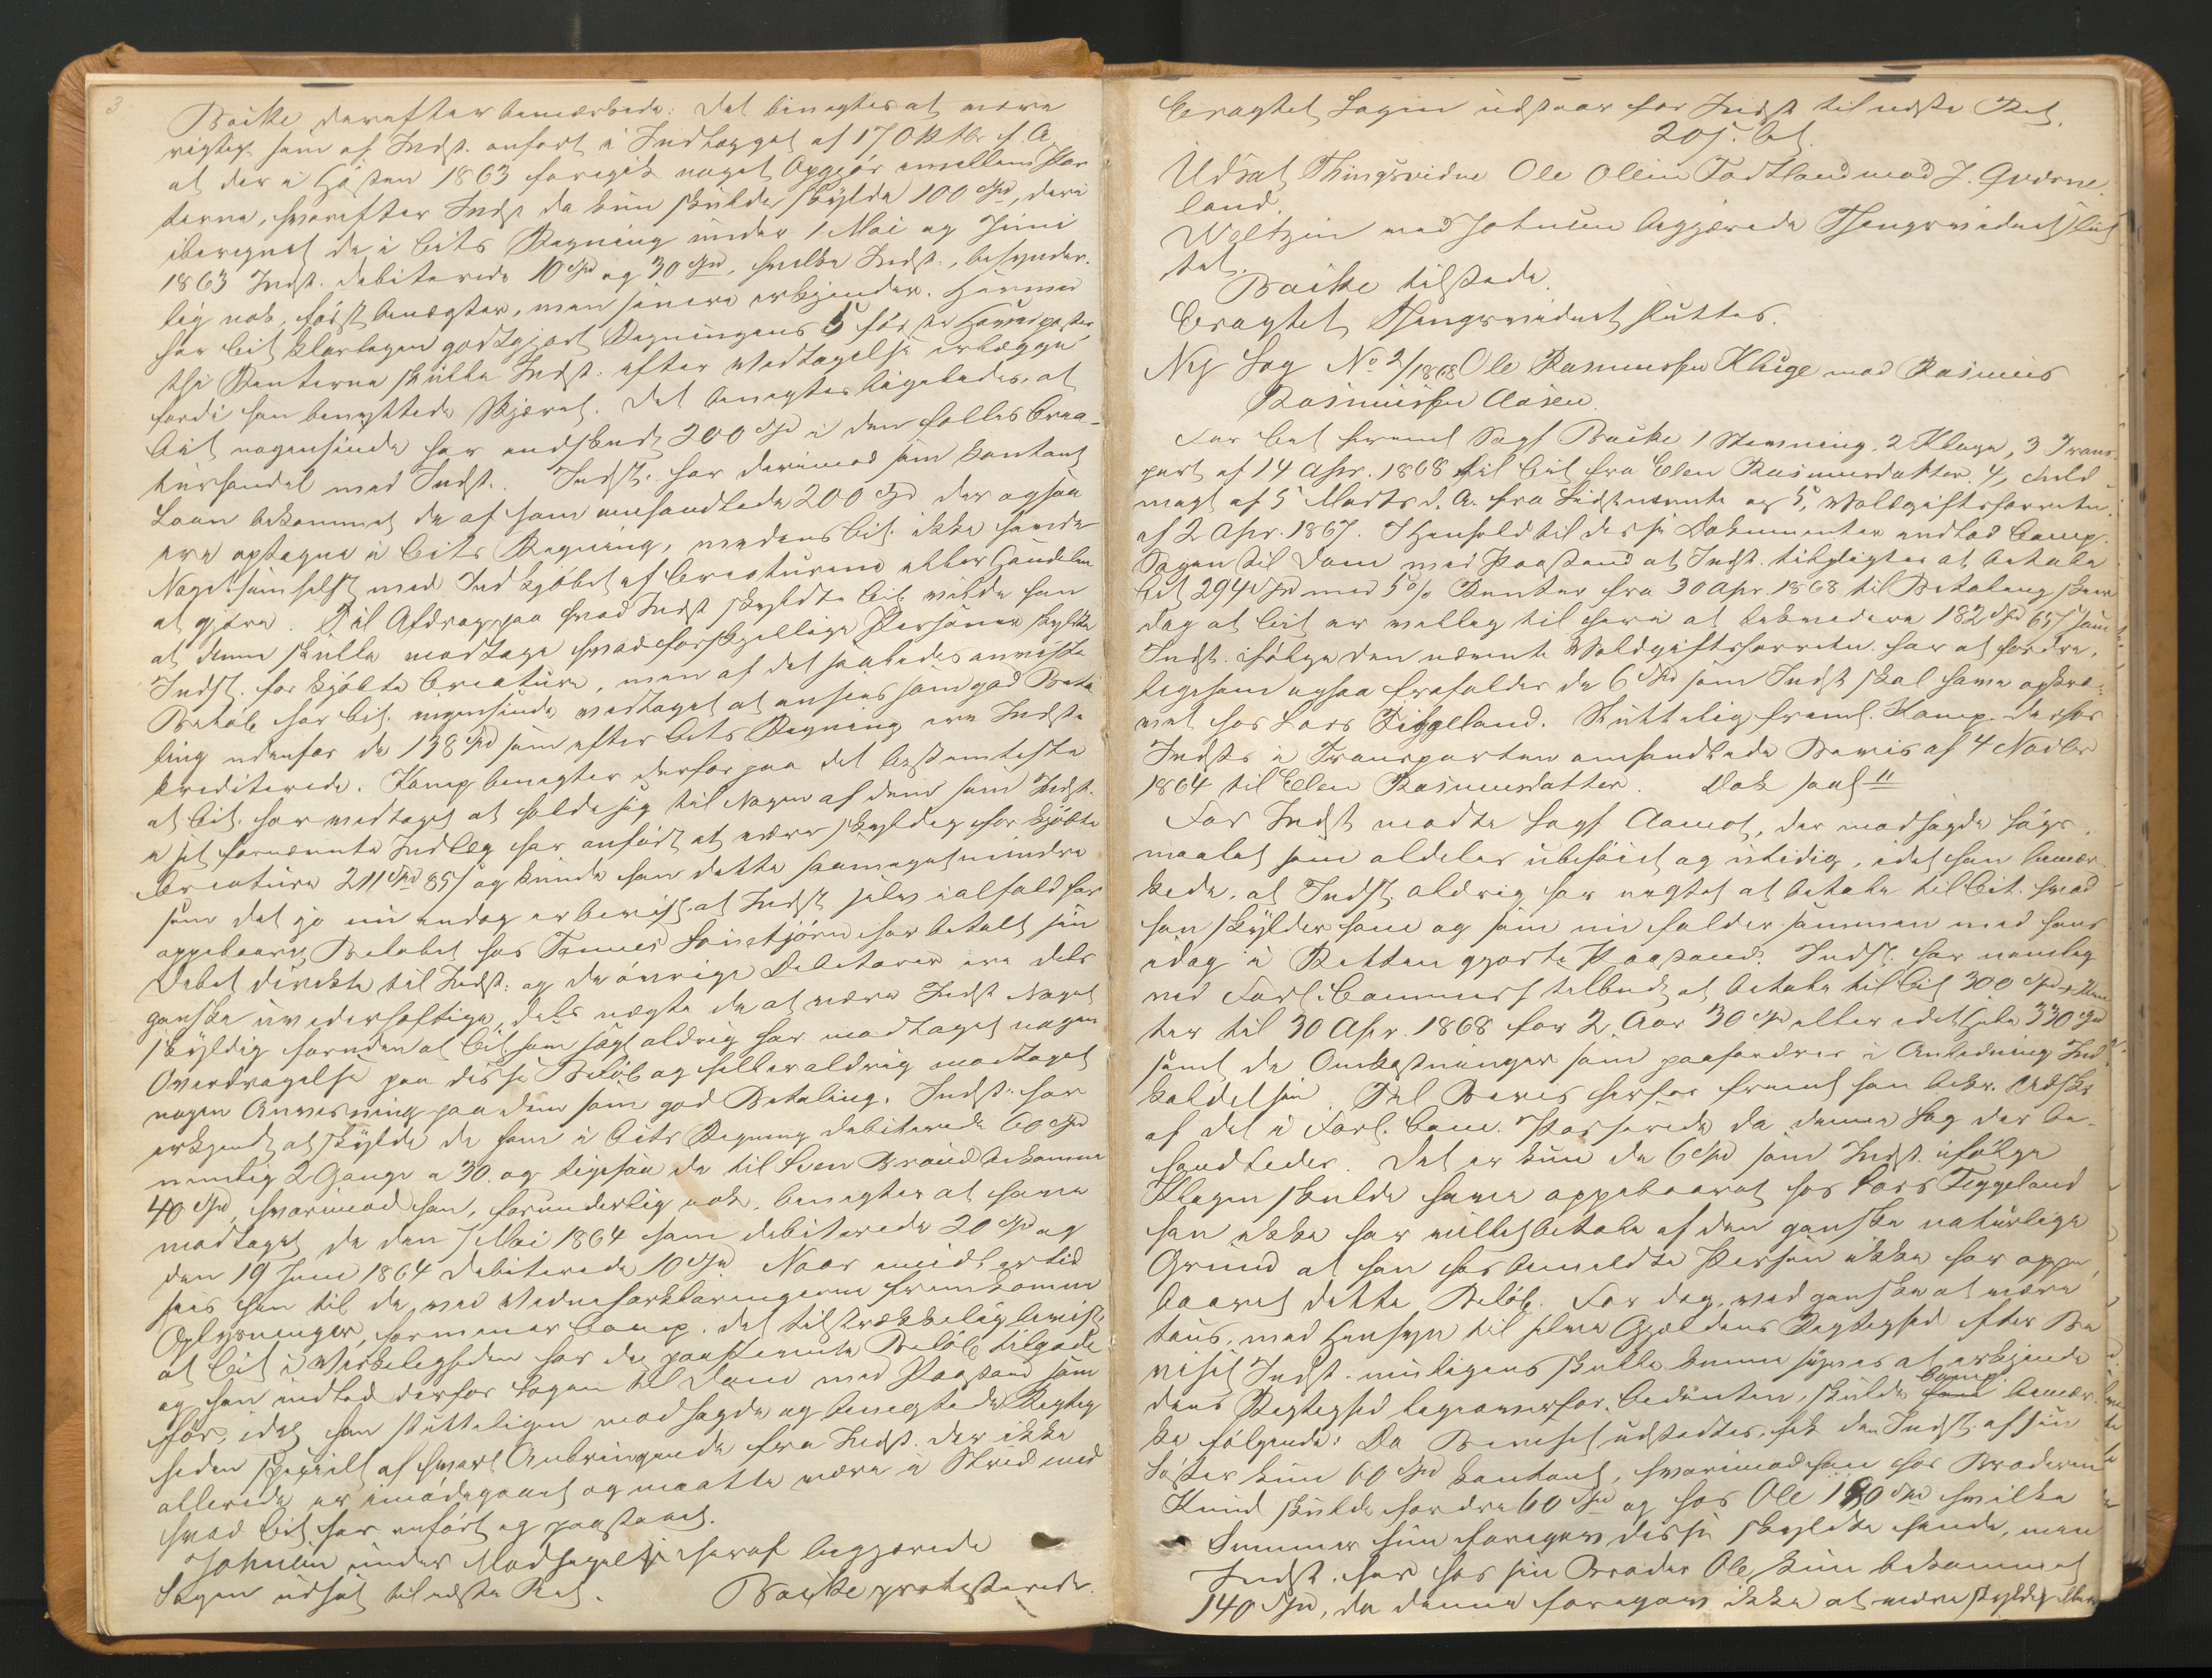 3
Baike derefter bemærkede: Det benegtes at være
rigtigt som af Indst. anført i Indlægget af 17 Oktbr f. A.
at der i Høsten 1863 foregik noget Opgjør imellem Par
terne, hvorefter Indst da kun skulde skylde 100 Spd, deri
iberegnet de i Cits Regning under 1 Mai og Juni
1863 Indst. debiterede 10 Spd og 30 Spd, hvilke Indst., besynder-
lig nok, først benegter, men senere erkjender. Hermed
har Cit klarligen godtgjort Regningens 5 første Hovedposter
thi Renterne skulde Indst. efter Vedtagelse erlægge
fordi han benyttede Skjæret. Det benegtes ligeledes, at
Cit nogensinde har indskudt 200 Spd i den fælles Crea-
turhandel med Indst. Indst. har derimod som kontant
Laan bekommet de af ham omhandlede 200 Spd der ogsaa
ere optagne i Cits Regning, medens Cit. ikke havde
Noget somhelst med Indkjøbet af Creaturene eller Handelen
at gjøre. Til Afdrag paa hvad Indst skyldte Cit. vilde han
at denne skulde modtage hvad forskjellige Personer skyldte
Indst. for kjøbte Creature, men af det saaledes anviste
Beløb har Cit. ingensinde vedtaget at ansees som god Beta
ling udenfor de 138 Spd som efter Cits Regning ere Indst
krediterede. Komp benegter derfor paa det bestemteste
at Cit. har vedtaget at holde sig til Nogen af dem som Indst.
i sit fornævnte Indlæg har anført at være skyldig for kjøbte
Creature 211 Spd 85 s og kunde han dette saameget mindre
som det jo nu endog er bevist, at Indst selv ialfald har
oppebaaret Beløbet hos Tønnes har betalt sin
Debet direkte til Indst. og de øvrige Debitorer ere dels
ganske uvederhæftige, dels negte de at være Indst Noget
skyldig foruden at Cit som sagt aldrig har modtaget nogen
Overdragelse paa disse Beløb og heller aldrig modtaget
nogen Anvisning paa dem som god Betaling. Indst. har
erkjendt at skylde de ham i Cits Regning debiterede 60 Spd
nemlig 2 Gange a 30. og ligesaa de til Sven Braud bekomne
40 Spd, hvorimod han, forunderlig nok, benegter at have
modtaget de den 7 Mai 1864 ham debiterede 20 Spd og
den 19 Juni 1864 debiterede 10 Spd. Naar imidlertid
sees hen til de ved Vidneforklaringerne fremkomne
Oplysninger, formener Comp. det tilstrækkelig bevist
at Cit i Virkeligheden har det paastevnte Beløb tilgode
og han indlod derfor Sagen til Dom med Paastand som
før, idet han sluttelig modsagde og benegtede Rigtig
heden specielt af hvert Anbringende fra Indst. der ikke
allerede er imødegaaet og maatte være i Strid med
hvad Cit har anført og paastaaet.
Johnsen under Modsigelse heraf begjærede
Sagen udsat til næste Ret. Baike protesterede.
Eragtet Sagen udstaar for Indst til næste Ret.
20 s. bet.
Udsat Thingsvidne Ole Olsen Todtland mod J. Qværne-
land.
Weltzin ved Johnsen begjærede Thingsvidnet slut
tet.
Baike tilstede.
Eragtet Thingsvidnet sluttes.
Ny Sag No 2/1868 Ole Rasmussen Kluge mod Rasmus
Rasmussen Aasen.
For Cit fremlagde Sagf Baike 1 Stevning, 2 Klage, 3 Trans-
port af 14 Apr. 1868 til Cit fra Elen Rasmusdatter. 4, Fuld-
magt af 5 Marts d. A. fra Sidstnævnte og 5, Voldgiftsforretn.
af 2 Apr. 1867. I Henhold til disse Dokumenter indlod Comp.
Sagen til Dom med Paastand at Indst. tilpligtes at betale
Cit 294 Spd med 5% Renter fra 30 Apr. 1868 til Betaling skeer
dog at Cit er villig til heri at dekortere 182 Spd 65 s som
Indst. ifølge den nævnte Voldgiftsforretn. har at fordre,
ligesom ogsaa frafaldes de 6 Spd som Indst skal have opkræ-
vet hos Lars Tiggeland. Sluttelig fremlagde Komp. det for
Indst i Transporten omhandlede Bevis af 4 Novbr
1864 til Elen Rasmusdatter. Dok saal "
For Indst mødte Sagf Aamot, der modsagde Søgs-
maalet som aldeles ubeføiet og utidig, idet han bemær-
kede, at Indst. aldrig har negtet at betale til Cit. hvad
han skylder ham og som nu falder sammen med hans
idag i Retten gjorte Paastand. Indst. har nemlig
ved Forl. Commission tilbudt at betale til Cit 300 Spd + Ren
ter til 30 Apr. 1868 for 2 Aar 30 Spd eller i det Hele 330 Spd
samt de Omkostninger som paafordres i Anledning Ind-
kaldelsen. Til Bevis herfor fremlagde han bekr. Udskr
af det i Forl. Com. Passerede da denne Sag der be-
handledes. Det er kun de 6 Spd som Indst. ifølge
Klagen skulde have oppebaaret hos Lars Tiggeland
han ikke har villet betale af den ganske naturlige
Grund at han hos bemeldte Person ikke har oppe-
baaret dette Beløb. For dog, ved ganske at være
taus, med Hensyn til selve Gjældens Rigtighed efter Be
viset Indst. muligens skulde kunne synes at erkjende
dens Rigtighed ligeoverfor Citanten, skulde han Comp. bemær-
ke følgende: Da Beviset udstedtes, fik den Indst. af sin
Søster kun 60 Spd kontant, hvorimod han hos Broderen
Knud skulde fordre 60 Spd og hos Ole 180 Spd hvilke
Summer hun foregav disse skyldte hende, men
Indst. har hos sin Broder Ole kun bekommet
140 Spd, da denne foregav ikke at være skyldig